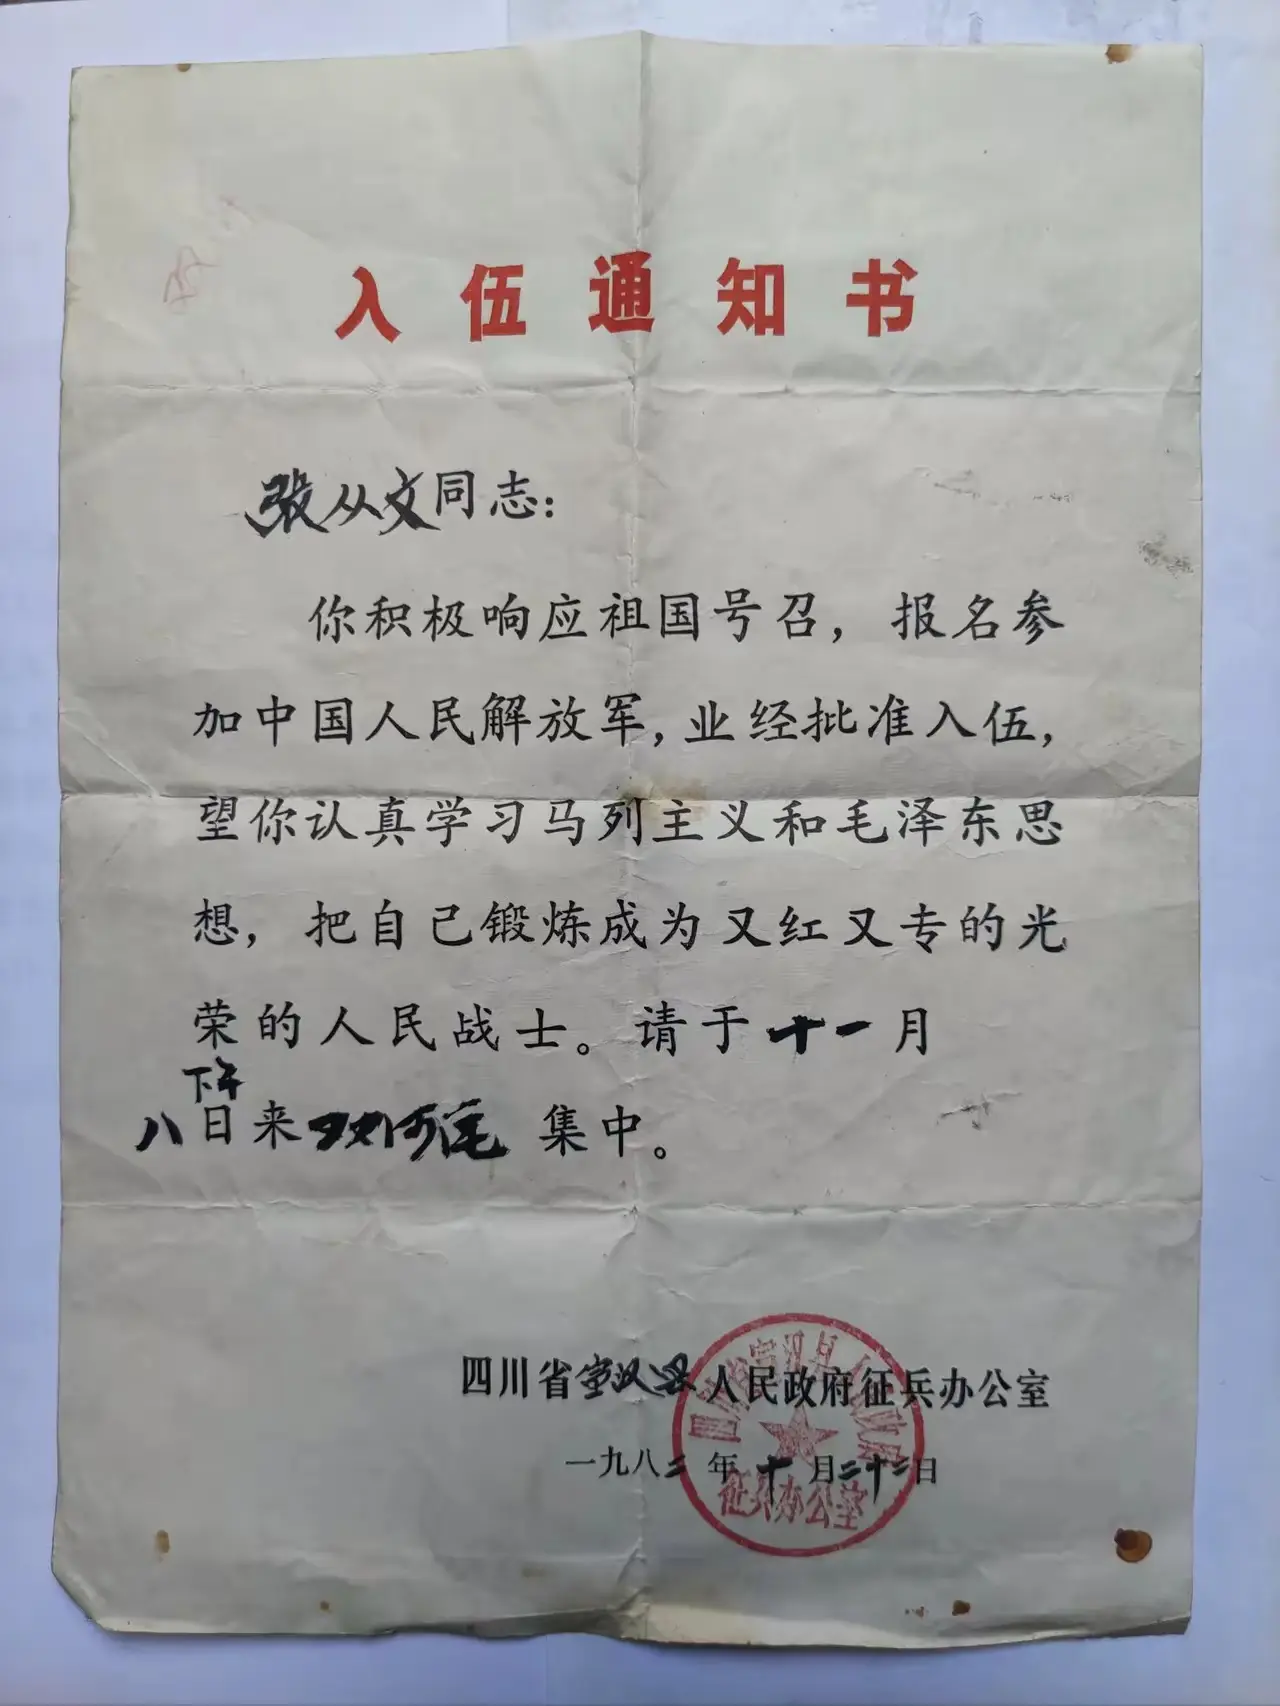 入伍通知书
张从文同志：
你积极响应祖国号召，报名参
加中国人民解放军，业经批准入伍，
望你认真学习马列主义和毛泽东思
想，把自己锻炼成为又红又专的光
荣的人民战士。请于十一月
下午
八日来双河宅集中。
四川省宣汉县人民政府征兵办公室
一九八二年十月二十二日
四川省宣汉县人民政府
征兵办公室